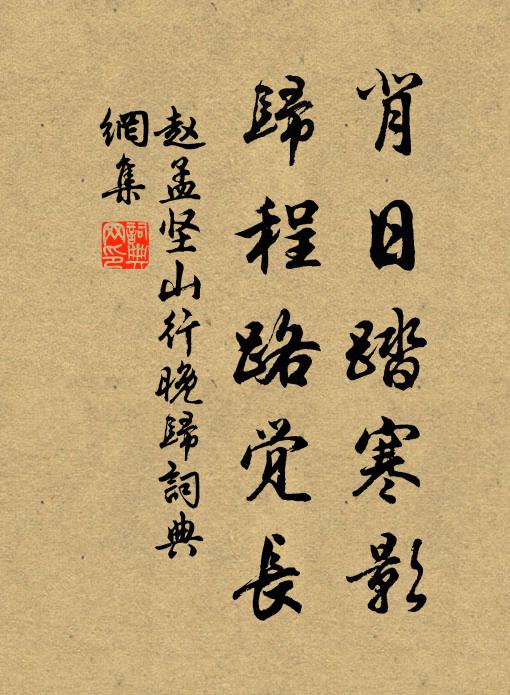 肖日踏寒影
歸程路觉長
赵孟坚山行晚歸詞典
網集
詞典
网印